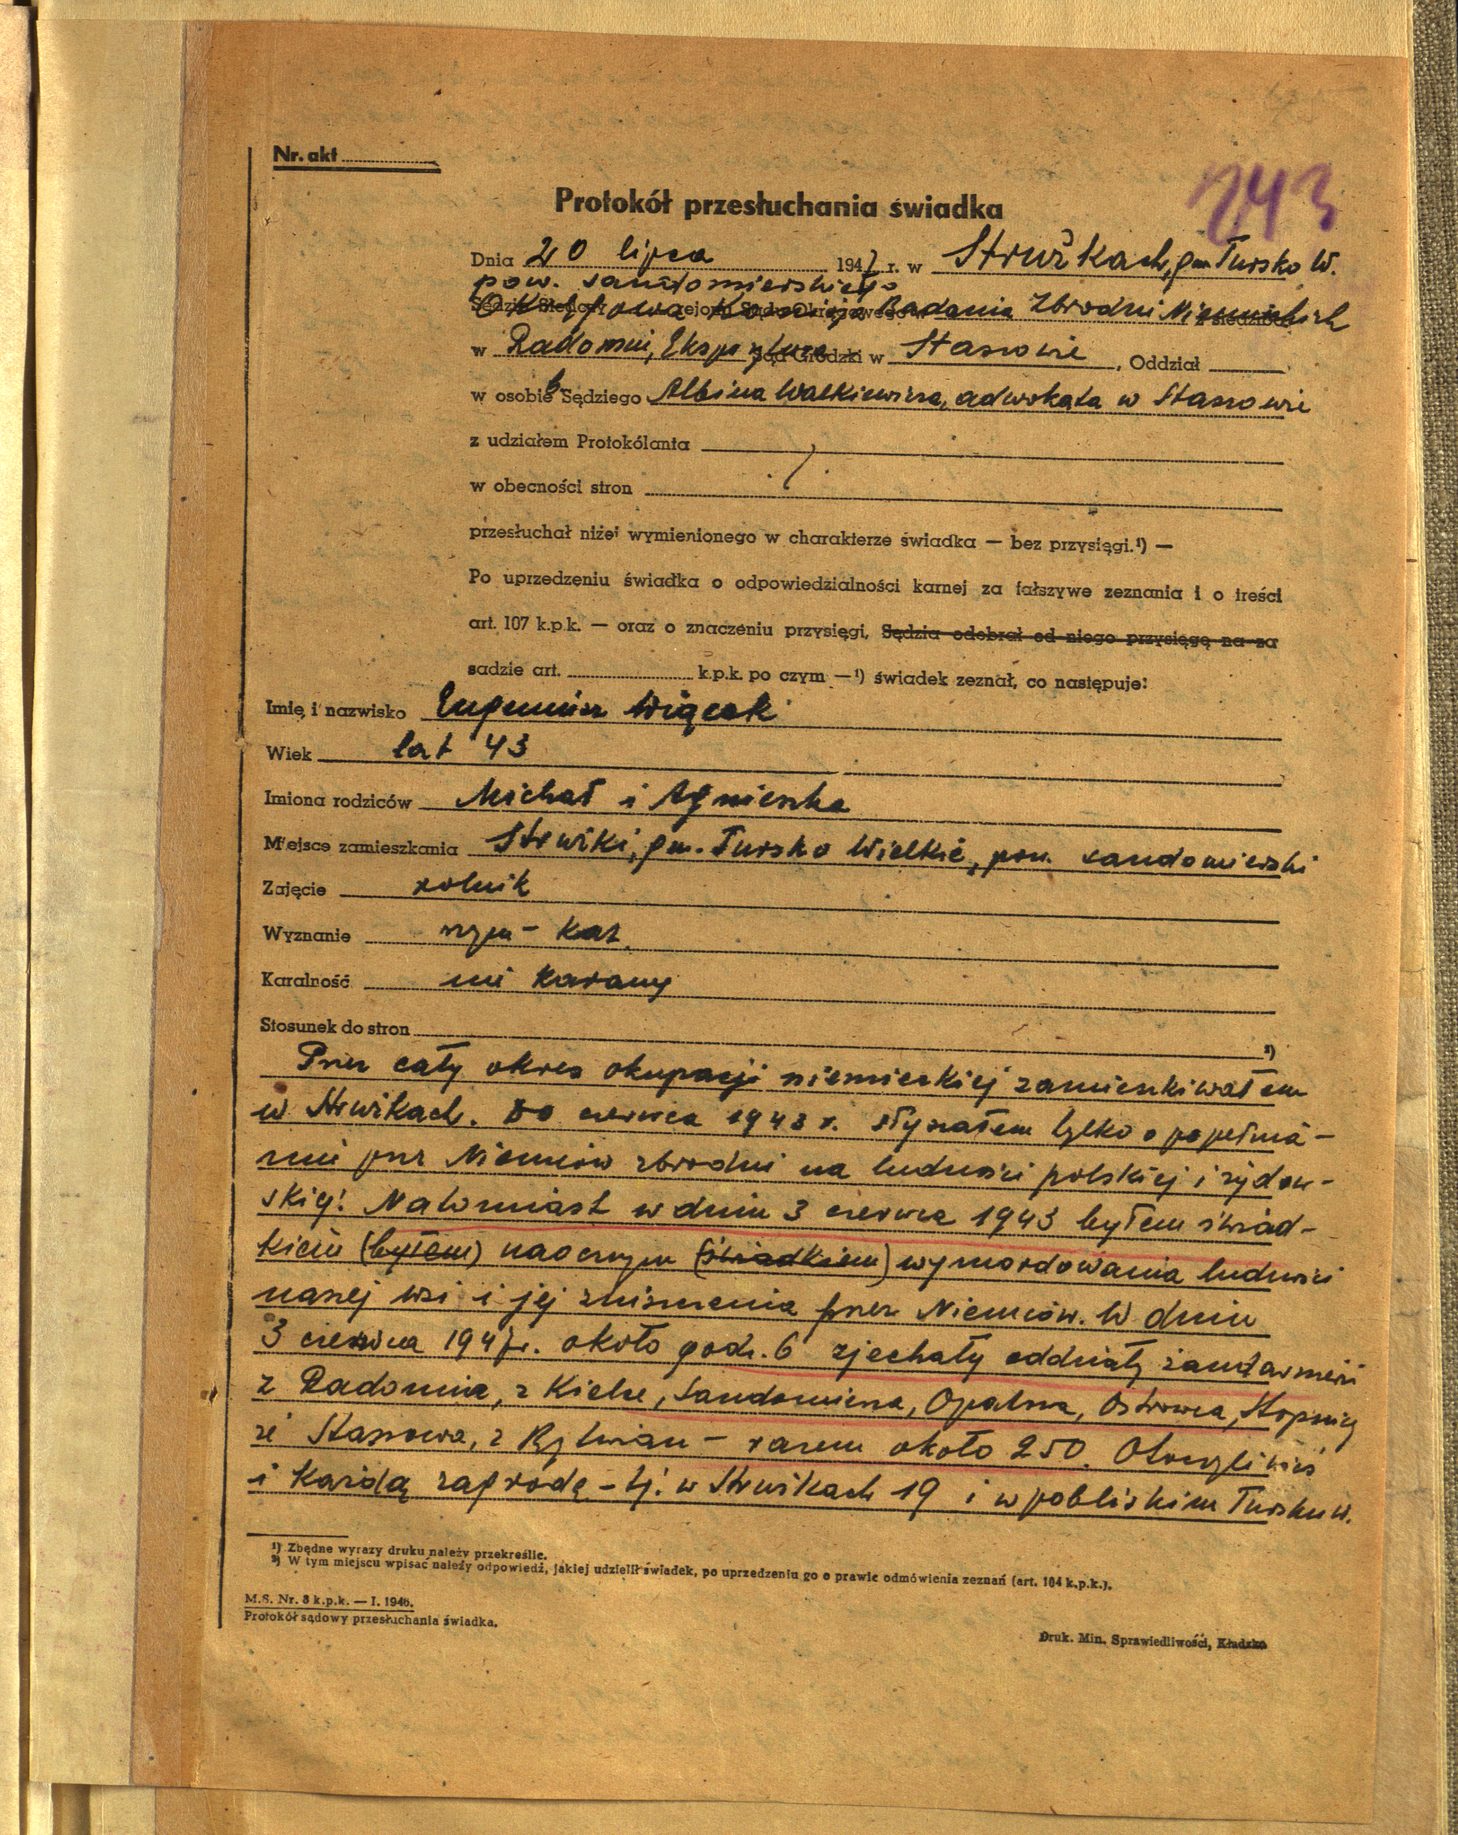 Nr. akt
243
Protokół przesłuchania świadka
Dnia 20 lipca 1947 r. w Strużkach, gm Tursko W.
pow. sandomierskiego
Okręgowa Komisja Badania Zbrodni Niemieckich
w Radomiu, Ekspozytura Sąd Grodzki w Staszowie, Oddział
w osobie Sędziego Albina Walkiewicza, adwokata w Staszowie
z udziałem Protokólanta
w obecności stron
przesłuchał niżej wymienionego w charakterze świadka — bez przysięgi.¹) —
Po uprzedzeniu świadka o odpowiedzialności karnej za fałszywe zeznania i o treści
art. 107 k.p.k. — oraz o znaczeniu przysięgi, Sędzia odebrał od niego przysięgę na za
sadzie art. k.p.k. po czym —¹) świadek zeznał, co następuje:
Imię i nazwisko Eugeniusz Wiącek
Wiek lat 43
Imiona rodziców Michał i Agnieszka
Miejsce zamieszkania Strużki, gm. Tursko Wielkie, pow. sandomierski
Zajęcie rolnik
Wyznanie rzym – kat.
Karalność nie karany
Stosunek do stron ²)
Przez cały okres okupacji niemieckiej zamieszkiwałem
w Strużkach. Do czerwca 1943 r. słyszałem tylko o popełnia-
niu przez Niemców zbrodni na ludności polskiej i żydow-
skiej. Natomiast w dniu 3 czerwca 1943 byłem świad-
kiem (byłem) naocznym (świadkiem) wymordowania ludności
naszej wsi i jej zniszczenia przez Niemców. W dniu
3 czerwca 1947 r. około godz. 6 zjechały oddziały żandarmerii
z Radomia, z Kielc, Sandomierza, Opatowa, Ostrowca, Stopnicy
ze Staszowa, z Rytwian – razem około 250. Otoczyli wieś
i każdą zagrodę – tj. w Strużkach 19 i w pobliskim Tursku W.
¹) Zbędne wyrazy druku należy przekreślić.
²) W tym miejscu wpisać należy odpowiedź, jakiej udzielił świadek, po uprzedzeniu go o prawie odmówienia zeznań (art. 104 k.p.k.).
M.S. Nr. 8 k.p.k. — I. 1946.
Protokół sądowy przesłuchania świadka.
Druk. Min. Sprawiedliwości, Kładzko